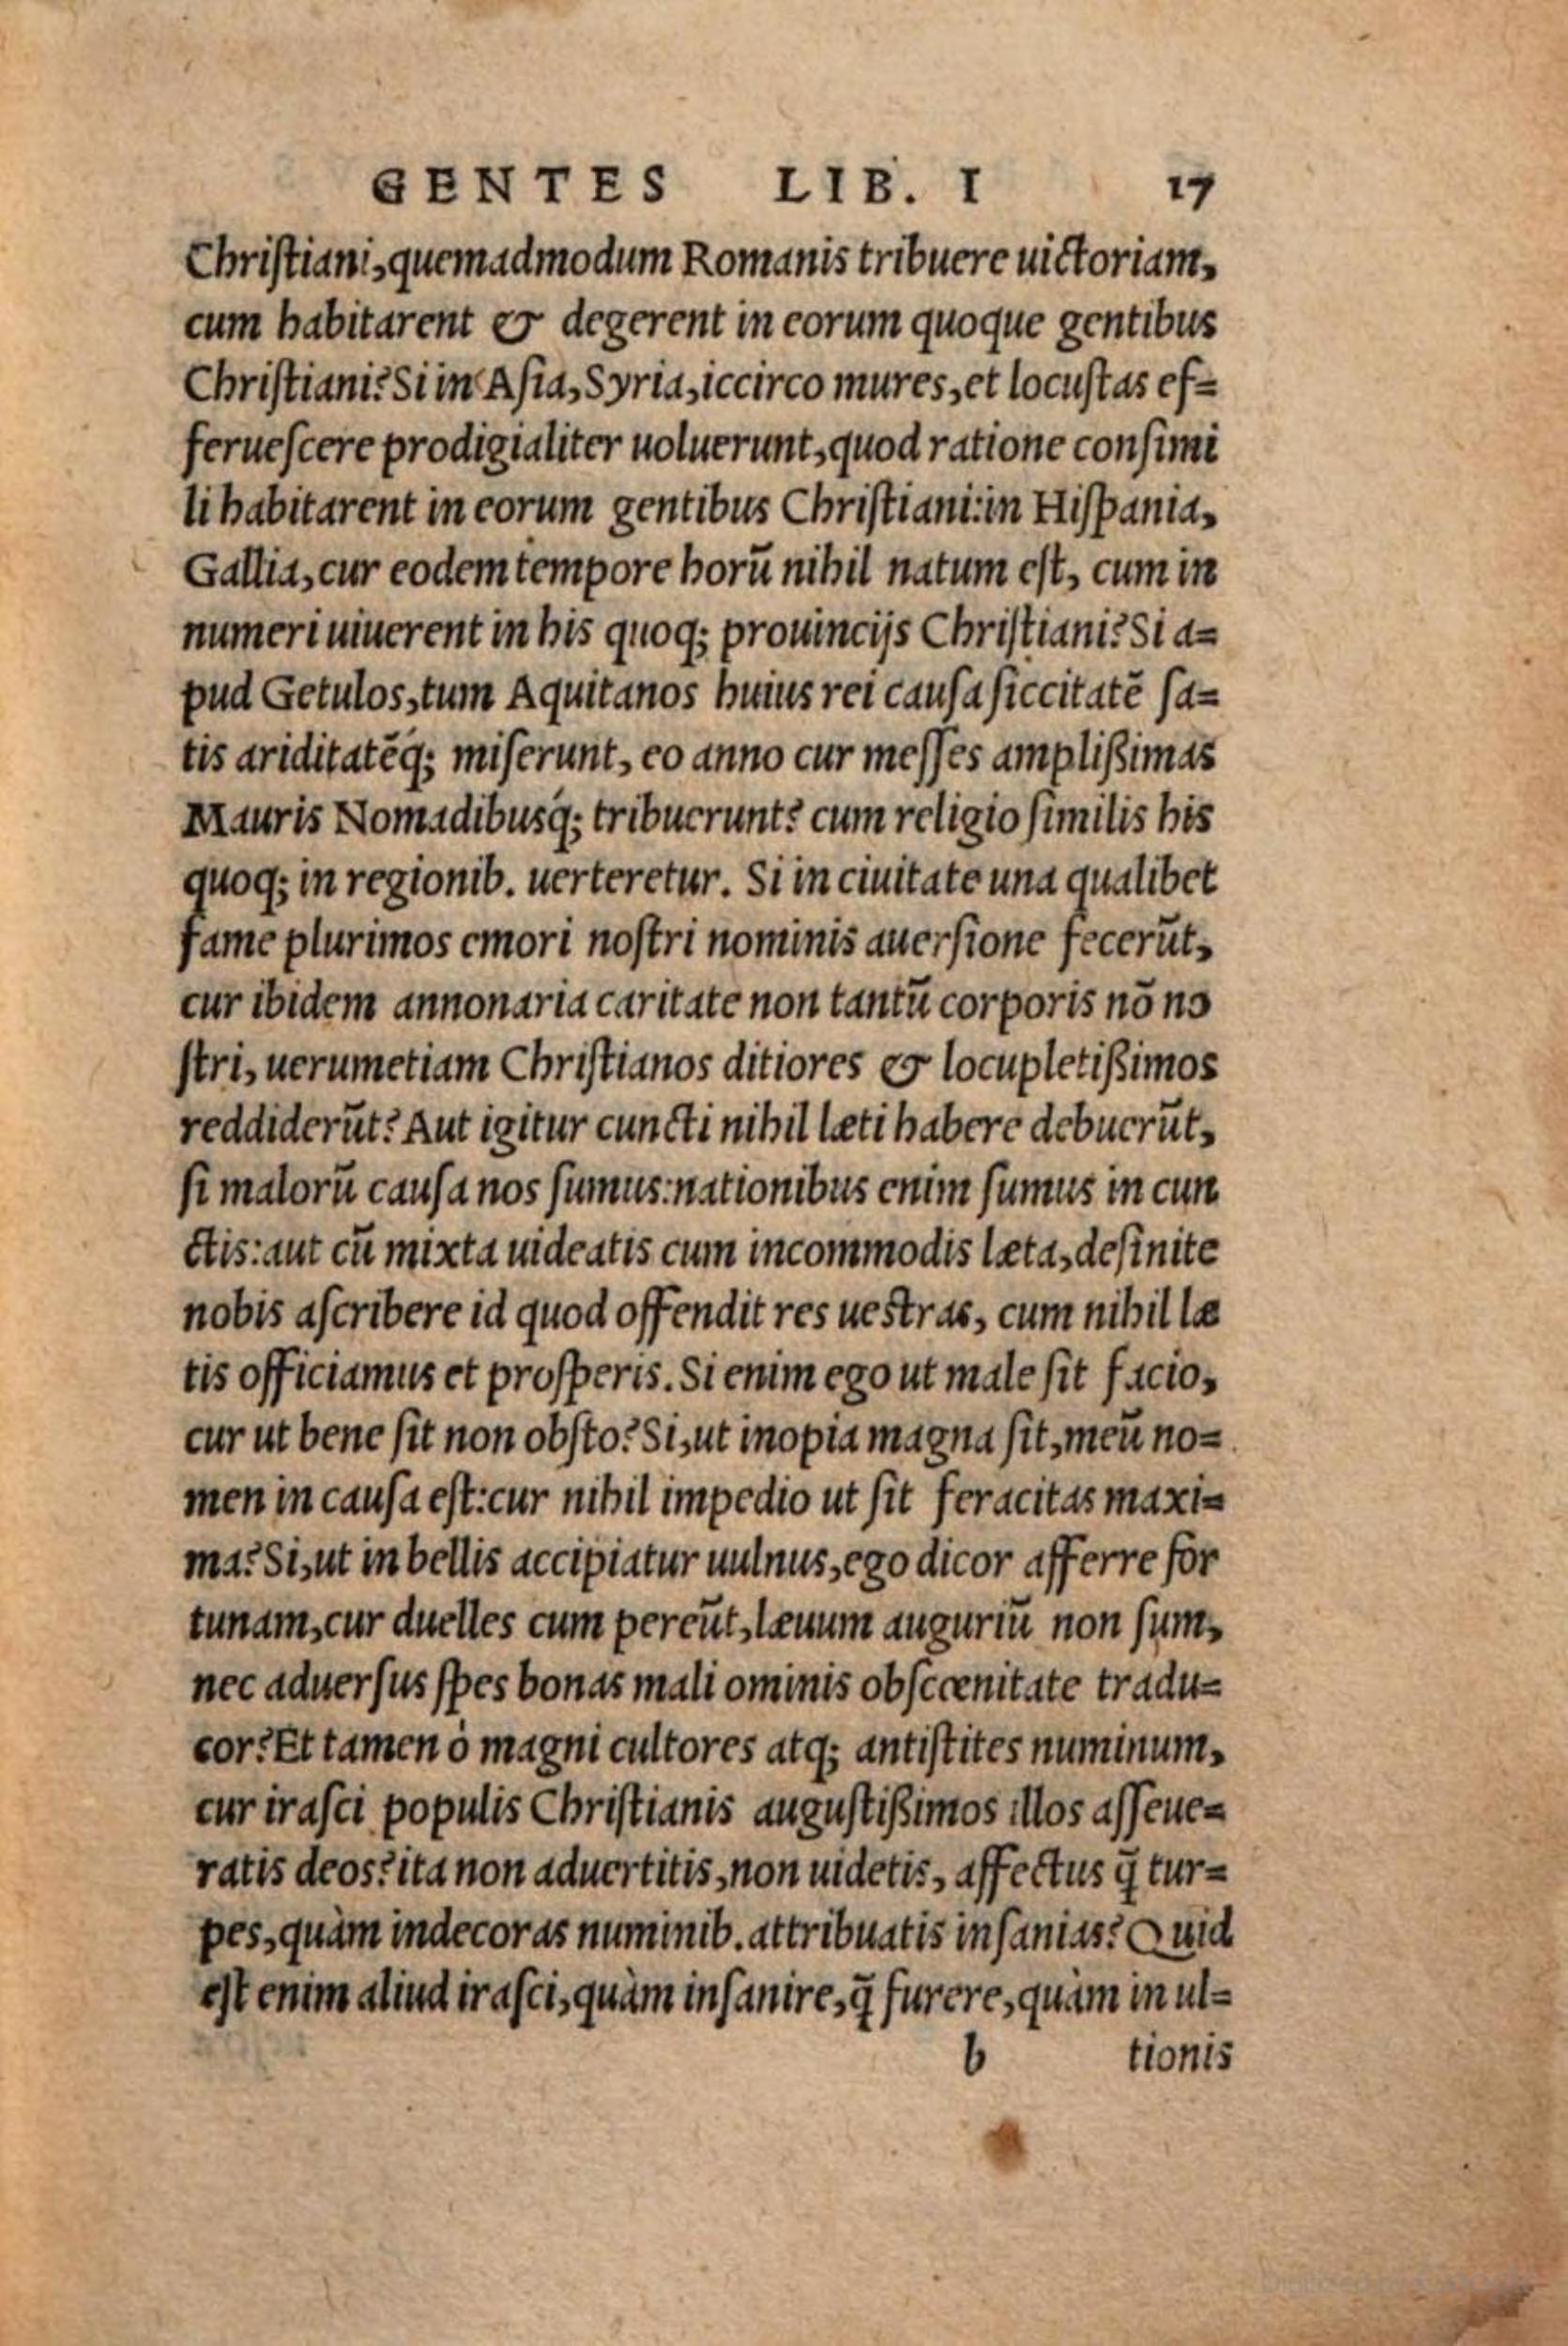 GENTES LIB. I 17
Chriſtiani, quemadmodum Romanis tribuere uictoriam,
cum habitarent & degerent in eorum quoque gentibus
Chriſtiani? Si in Aſia, Syria, iccirco mures, et locuſtas ef=
feruеſcere prodigialiter uoluerunt, quod ratione conſimi
li habitarent in eorum gentibus Chriſtiani: in Hiſpania,
Gallia, cur eodem tempore horū nihil natum eſt, cum in
numeri uiuerent in his quoq; prouincijs Chriſtiani? Si a=
pud Getulos, tum Aquitanos huius rei cauſa ſiccitatē ſa=
tis ariditatēq́; miſerunt, eo anno cur meſſes amplißimas
Mauris Nomadibusq́; tribuerunt? cum religio ſimilis his
quoq; in regionib. uerteretur. Si in ciuitate una qualibet
fame plurimos emori noſtri nominis auerſione fecerūt,
cur ibidem annonaria caritate non tantū corporis nō no
ſtri, uerumetiam Chriſtianos ditiores & locupletißimos
reddiderūt? Aut igitur cuncti nihil læti habere debuerūt,
ſi malorū cauſa nos ſumus: nationibus enim ſumus in cun
ctis: aut cū mixta uideatis cum incommodis læta, deſinite
nobis aſcribere id quod offendit res ueſtras, cum nihil læ
tis officiamus et proſperis. Si enim ego ut male ſit facio,
cur ut bene ſit non obſto? Si, ut inopia magna ſit, meū no=
men in cauſa eſt: cur nihil impedio ut ſit feracitas maxi=
ma? Si, ut in bellis accipiatur uulnus, ego dicor afferre for
tunam, cur duelles cum pereūt, læuum auguriū non ſum,
nec aduerſus ſpes bonas mali ominis obſcœnitate tradu=
cor? Et tamen ò magni cultores atq; antiſtites numinum,
cur iraſci populis Chriſtianis auguſtißimos illos aſſeue=
ratis deos? ita non aduertitis, non uidetis, affectus q̄ tur=
pes, quàm indecoras numinib. attribuatis inſanias? Quid
eſt enim aliud iraſci, quàm inſanire, q̄ furere, quàm in ul=
b tionis